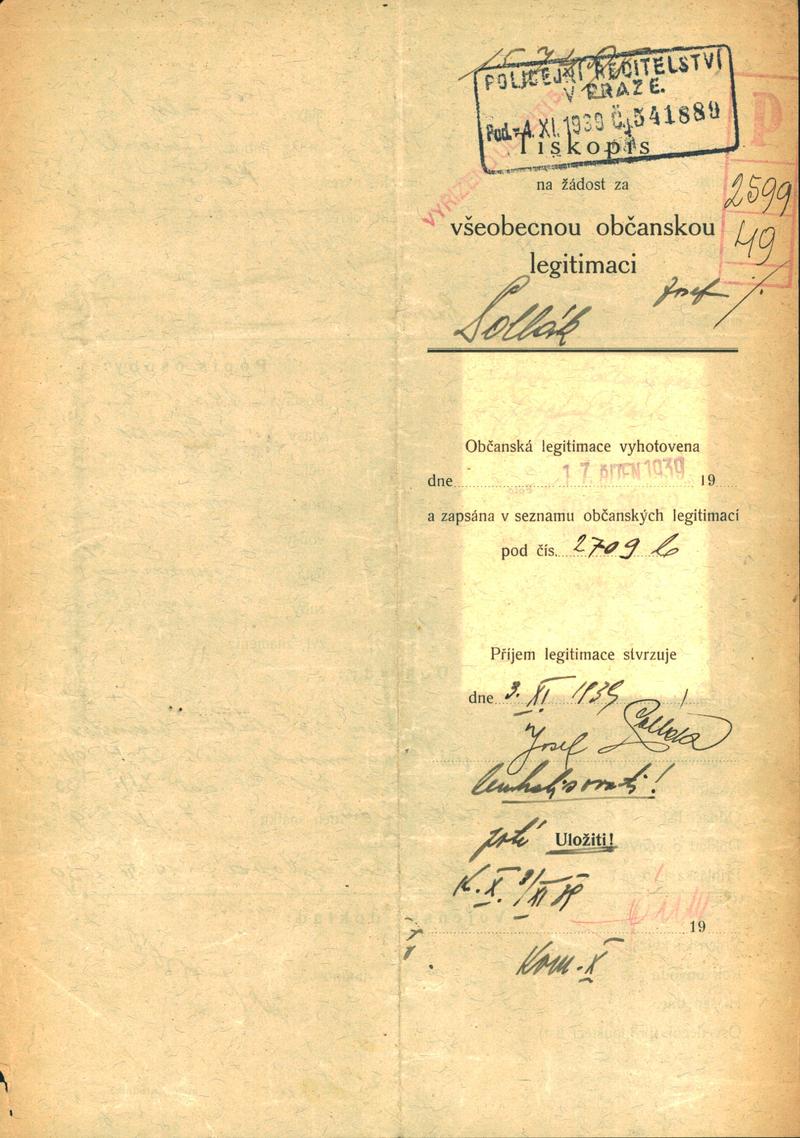 POLICEJNÍ ŘEDITELSTVÍ
V PRAZE.
Pod. -4. XI. 1939 Čj. 541889
P
VYŘÍZENO
Tiskopis
na žádost za
2599
všeobecnou občanskou
49
legitimaci
Josef
Sollák
Občanská legitimace vyhotovena
dne 17. ŘÍJEN 1939 19
a zapsána v seznamu občanských legitimací
pod čís. 2709
Příjem legitimace stvrzuje
dne 3. XI. 1939
Josef
potí Uložiti!
K. X. 9/XI 39
19
Kom. X